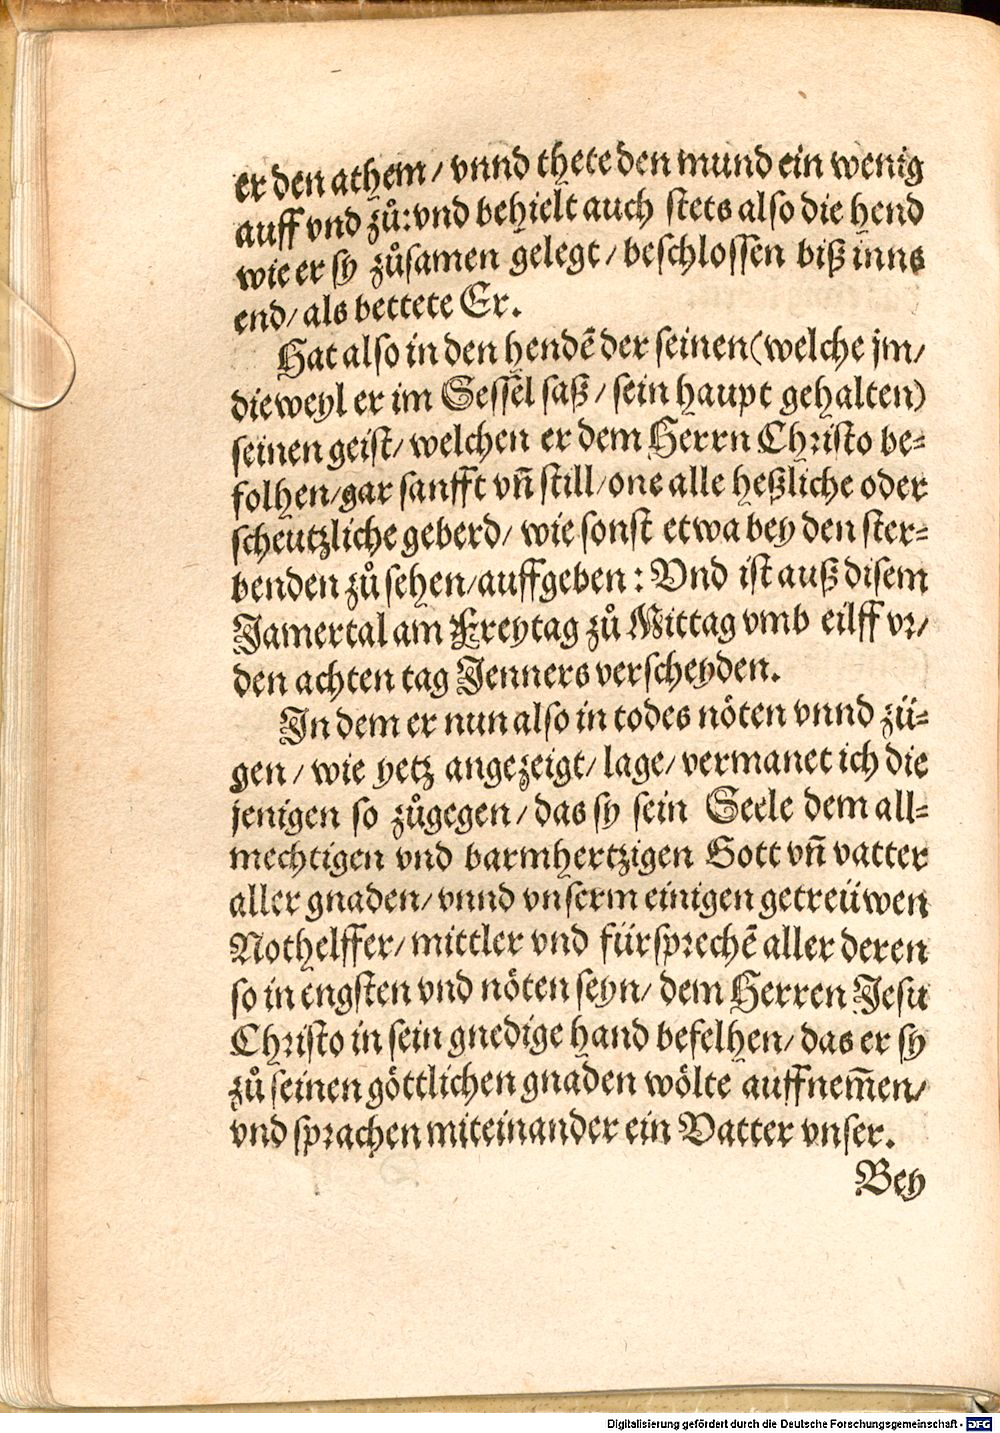 er den athem / vnnd thete den mund ein wenig
auff vnd zů: vnd behielt auch stets also die hend
wie er sy zůsamen gelegt / beschlossen biß inns
end / als bettete Er.
Hat also in den hendẽ der seinen (welche jm /
die weyl er im Sessel saß / sein haupt gehalten)
seinen geist / welchen er dem Herrn Christo be=
folhen / gar sanfft vñ still / one alle heßliche oder
scheutzliche geberd / wie sonst etwa bey den ster=
benden zů sehen / auffgeben : Vnd ist auß disem
Jamertal am Freytag zů Mittag vmb eilff vr /
den achten tag Jenners verscheyden.
In dem er nun also in todes nöten vnnd zü=
gen / wie yetz angezeigt / lage / vermanet ich die
jenigen so zůgegen / das sy sein Seele dem all=
mechtigen vnd barmhertzigen Gott vñ vatter
aller gnaden / vnnd vnserm einigen getreüwen
Nothelffer / mittler vnd fürsprechẽ aller deren
so in engsten vnd nöten seyn / dem Herren Jesu
Christo in sein gnedige hand befelhen / das er sy
zů seinen göttlichen gnaden wölte auffnem̃en /
vnd sprachen miteinander ein Vatter vnser.
Bey
Digitalisierung gefördert durch die Deutsche Forschungsgemeinschaft - DFG